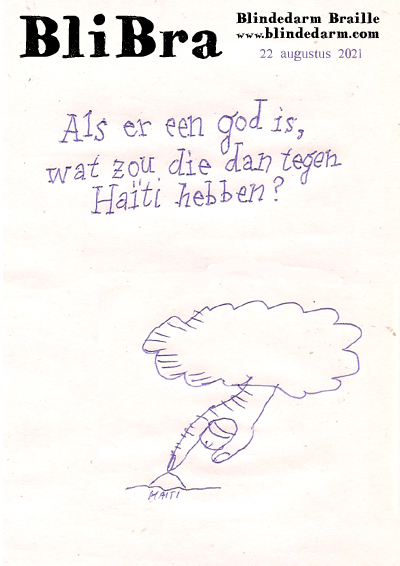 BliBra
Blindedarm Braille
www.blindedarm.com
22 augustus 2021
Als er een god is,
wat zou die dan tegen
Haïti hebben?
HAITI